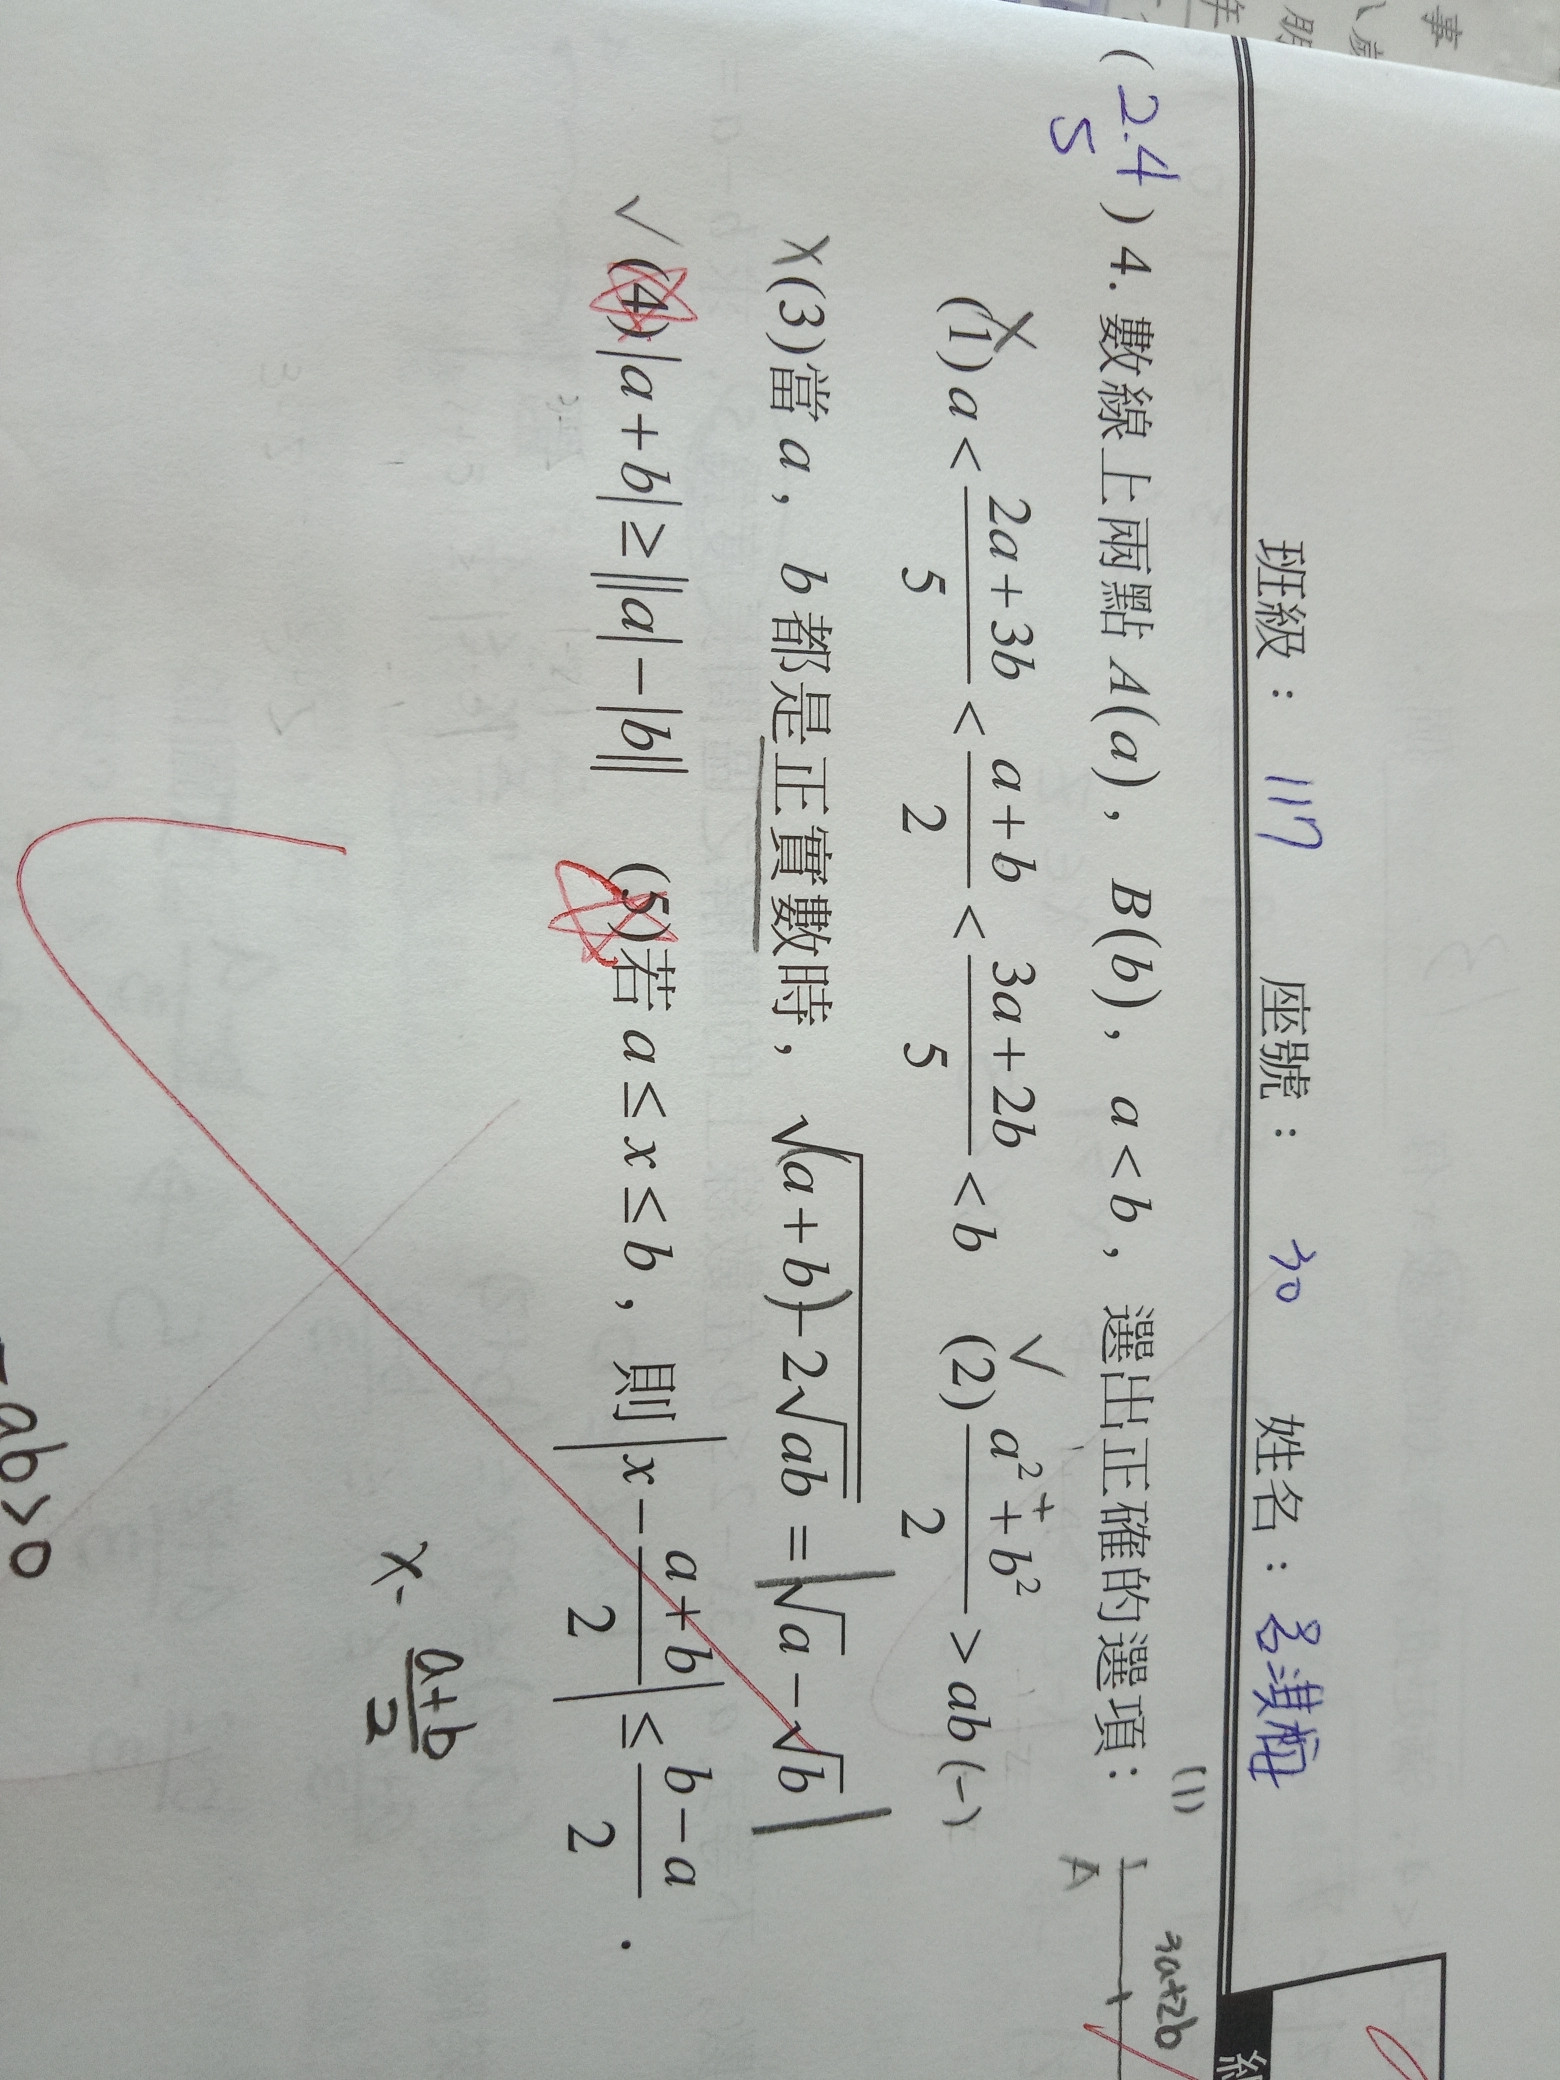 班級：117 座號：30 姓名：呂淇
(2.4
5
) 4. 數線上兩點 A(a)，B(b)，a<b，選出正確的選項：
(1)
3a+2b
A
X (1) a < \frac{2a+3b}{5} < \frac{a+b}{2} < \frac{3a+2b}{5} < b ✓ (2) \frac{a²+b²}{2} > ab (-)
+
X (3)當 a，b 都是正實數時，√((a+b)-2√ab) = |√a-√b|
✓ (4) |a+b| ≥ ||a|-|b|| (5)若 a≤x≤b，則 |x-\frac{a+b}{2}| ≤ \frac{b-a}{2}．
x- \frac{a+b}{2}
-ab>0